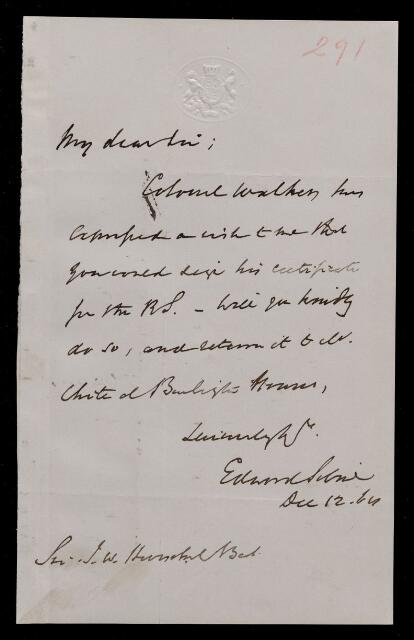 291
My dear Sir;
Colonel Walker has
expressed a wish to me that
you would sign his certificate
for the RS. – Will you kindly
do so, and return it to Mr.
White at Burlington House,
Sincerely Yrs.
Edward Sabine
Dec 12. 64
Sir J. W. Herschel Bat.